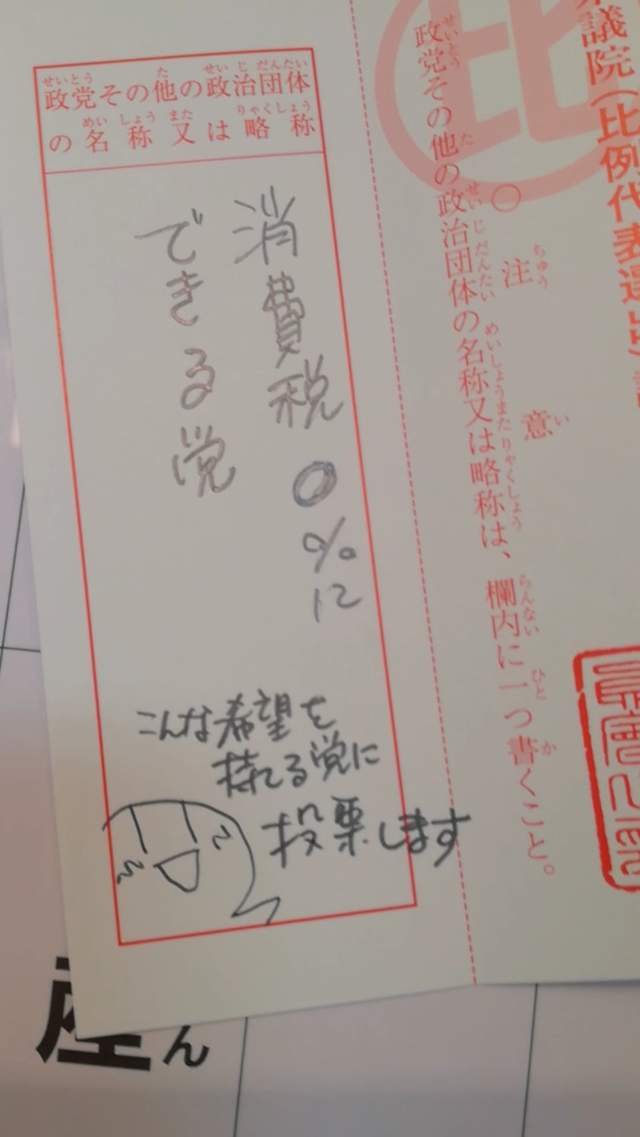 議院(比例代表選出)
比
○ 注意
政党その他の政治団体の名称又は略称は、欄内に一つ書くこと。
政党その他の政治団体
の名称又は略称
消費税0%に
できる党
こんな希望を
持てる党に
投票します
産ん